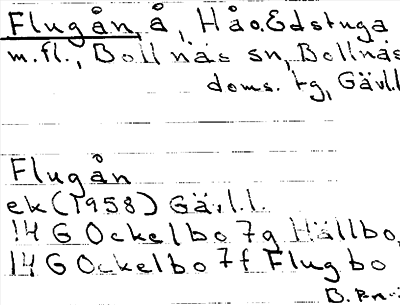 Flugån, å, Håo.Edstuga
m.fl., Bollnäs sn, Bollnäs
doms. tg, Gävl.l
Flugån
ek (1958) Gävl.l.
14 G Ockelbo 7g Hällbo,
14 G Ockelbo 7f Flugbo